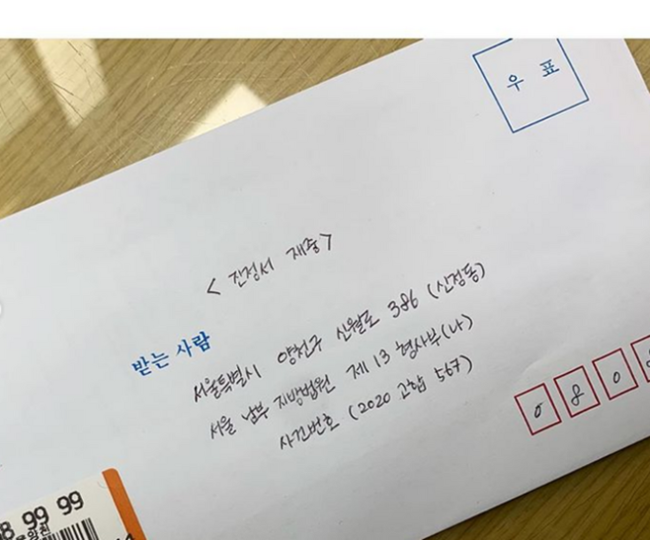 우 표
< 진정서 재중>
받는 사람
서울특별시 양천구 신월로 386 (신정동)
서울 남부 지방법원 제 13 형사부(나)
사건번호 (2020 고합 567)
0 8 0
8 99 99